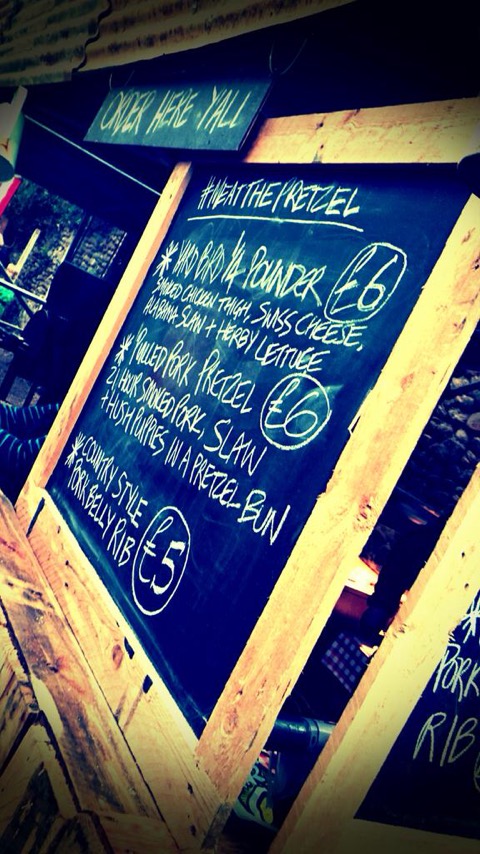 ORDER HERE Y'ALL
#MEATTHEPRETZEL
* YARD BIRD 1/4 POUNDER £6
SMOKED CHICKEN THIGH, SWISS CHEESE,
ALABAMA SLAW + HERBY LETTUCE
* PULLED PORK PRETZEL £6
21 HOUR SMOKED PORK, SLAW
+ HUSH PUPPIES IN A PRETZEL BUN
* COUNTRY STYLE
PORK BELLY RIB £5
*
PORK
RIB